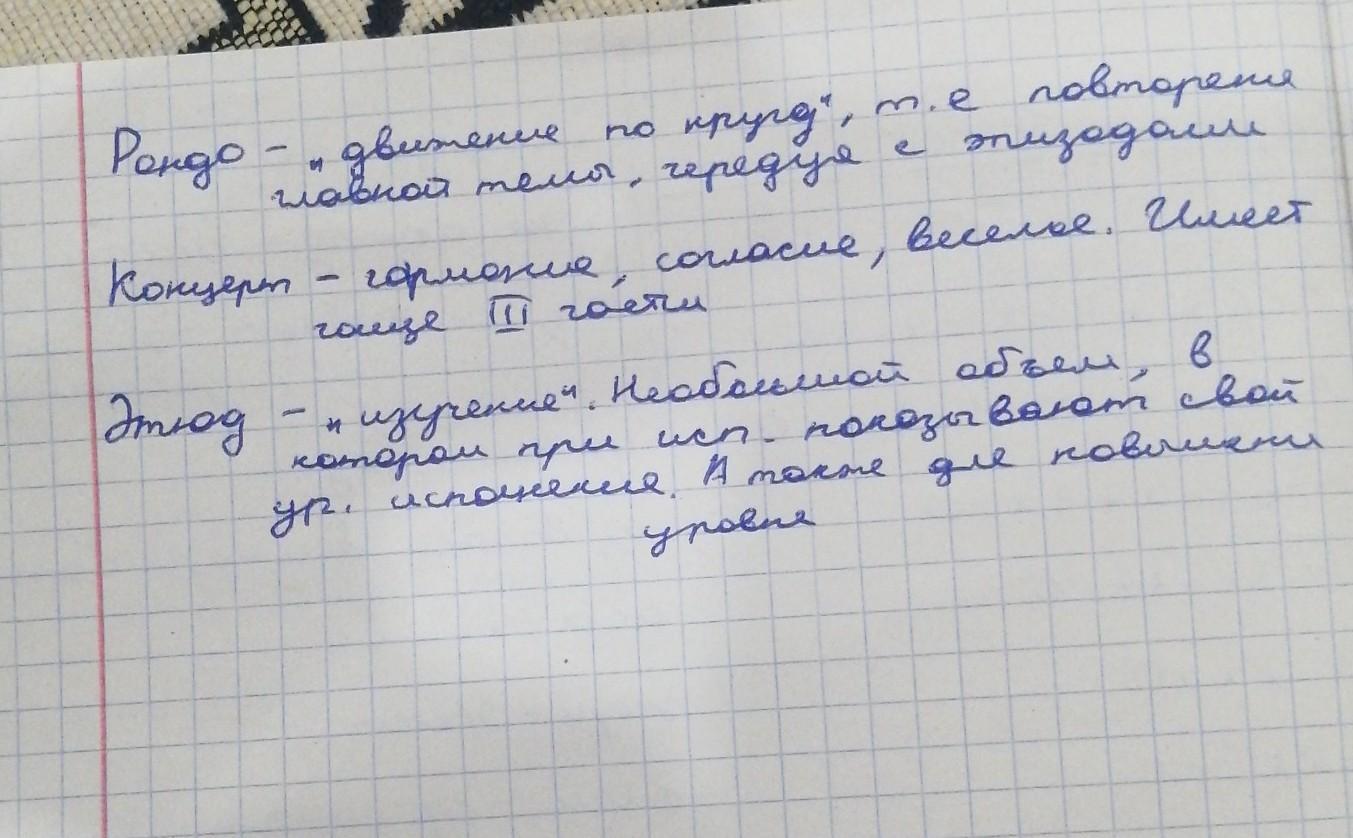 Рондо - „движение по кругу“, т.е повторения
главной темы, чередуя с эпизодами
Концерт - гармония, согласие, веселье. Имеет
чаще III части
Этюд - „изучение“. Необольшой объем, в
котором при исп. показывают свой
ур. исполнения. А также для повышени
уровня